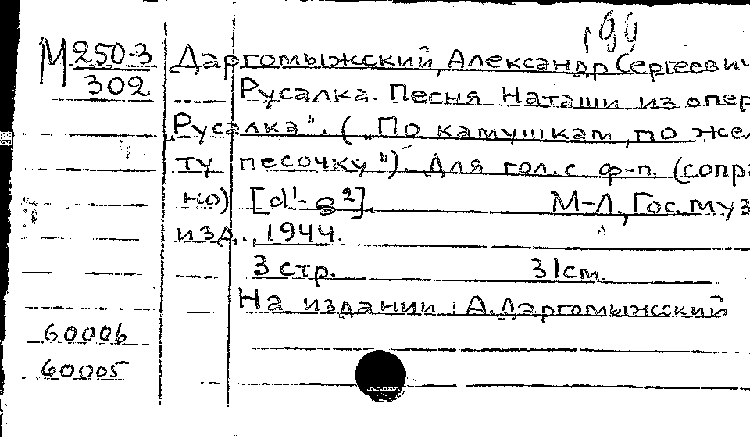 199
М 250-3 Даргомыжский, Александр Сергеевич
302 Русалка. Песня Наташи из опер
Русалка". („По камушкам, по жел
ту песочку"). Для гол. с ф-п. (сопра
но) [d¹-g²]. М-Л, Гос. муз
изд., 1944.
3 стр. 31 см.
На издании: А. Даргомыжский
60006
60005